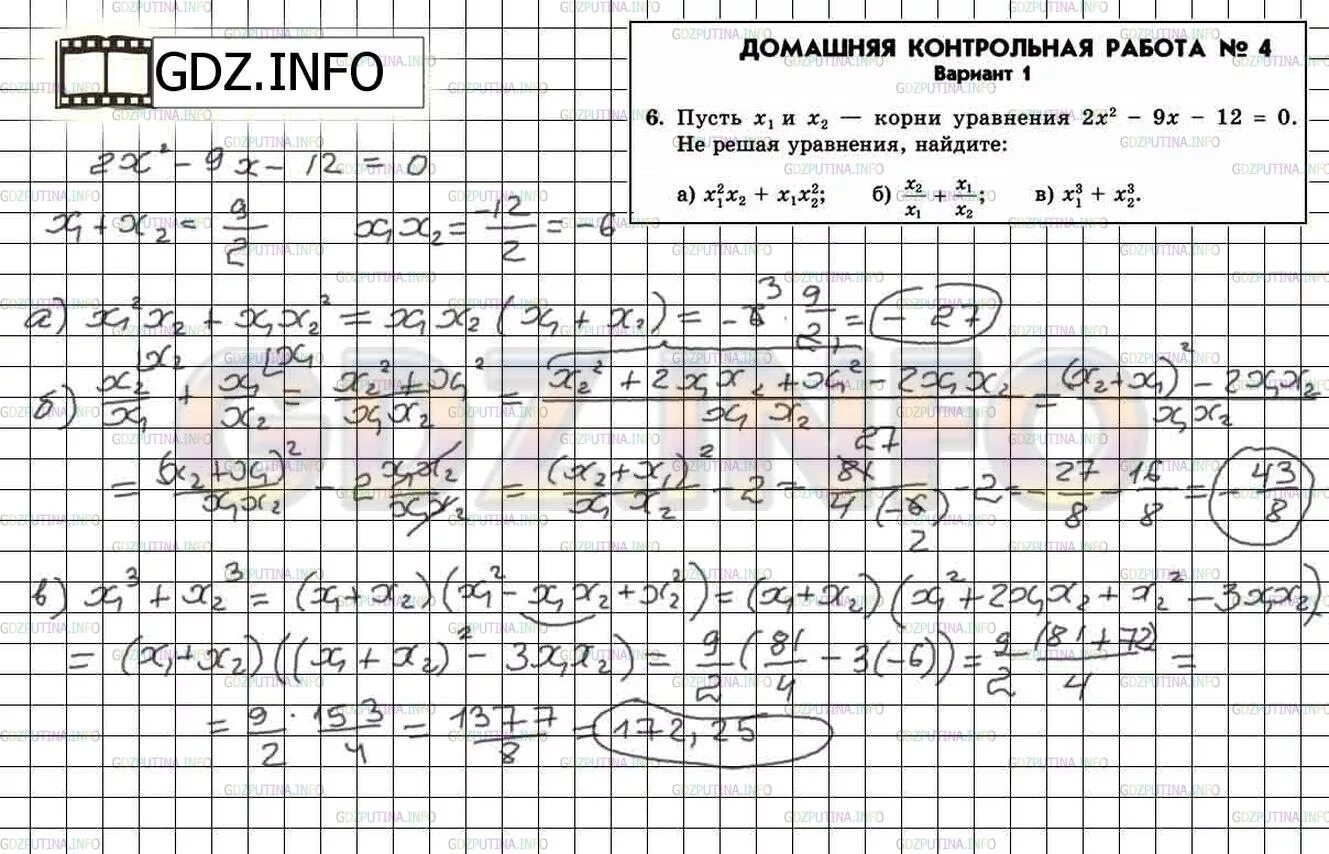 GDZ.INFO
ДОМАШНЯЯ КОНТРОЛЬНАЯ РАБОТА № 4
Вариант 1
6. Пусть x₁ и x₂ — корни уравнения 2x² − 9x − 12 = 0.
Не решая уравнения, найдите:
а) x₁²x₂ + x₁x₂²; б) x₂/x₁ + x₁/x₂; в) x₁³ + x₂³.
2x² − 9x − 12 = 0
x₁ + x₂ = 9/2 x₁x₂ = −12/2 = −6
а) x₁²x₂ + x₁x₂² = x₁x₂(x₁ + x₂) = −6 3 · 9/2 1 = −27
б) x₂/x₁ |x₂ + x₁/x₂ |x₁ = (x₂² + x₁²)/(x₁x₂) = (x₂² + 2x₁x₂ + x₁² − 2x₁x₂)/(x₁x₂) = ((x₂ + x₁)² − 2x₁x₂)/(x₁x₂)
= (x₂ + x₁)²/(x₁x₂) − 2 x₁x₂/(x₁x₂) = (x₂ + x₁)²/(x₁x₂) − 2 = 27 81/(4(−6)) 2 − 2 = −27/8 − 16/8 = −43/8
в) x₁³ + x₂³ = (x₁ + x₂)(x₁² − x₁x₂ + x₂²) = (x₁ + x₂)(x₁² + 2x₁x₂ + x₂² − 3x₁x₂)
= (x₁ + x₂)((x₁ + x₂)² − 3x₁x₂) = 9/2 (81/4 − 3(−6)) = 9/2 (81 + 72)/4 =
= 9/2 · 153/4 = 1377/8 = 172,25
GDZ.INFO
GDZPUTINA.INFO